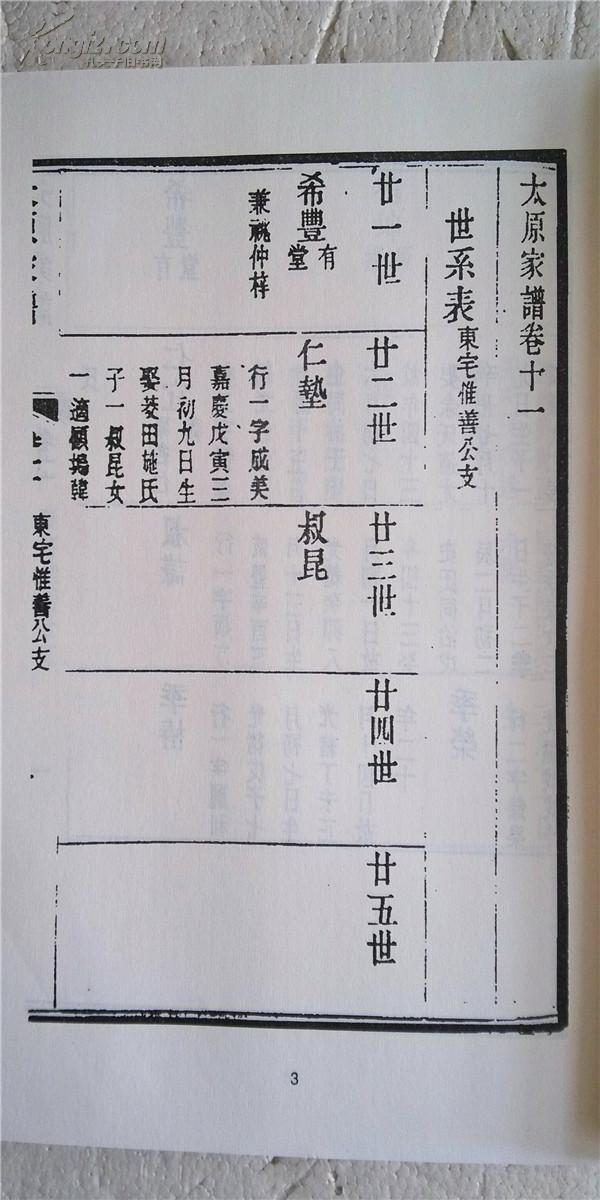 Kongfz.com
孔夫子旧书网
太原家譜卷十一
世系表 東宅惟善公支
廿一世
廿二世
廿三世
廿四世
廿五世
希豐 有堂
兼祧仲梓
仁墊
行一字成美
嘉慶戊寅三
月初九日生
娶菱田施氏
子一叔昆女
一適頋塢韓
叔昆
東宅惟善公支
3